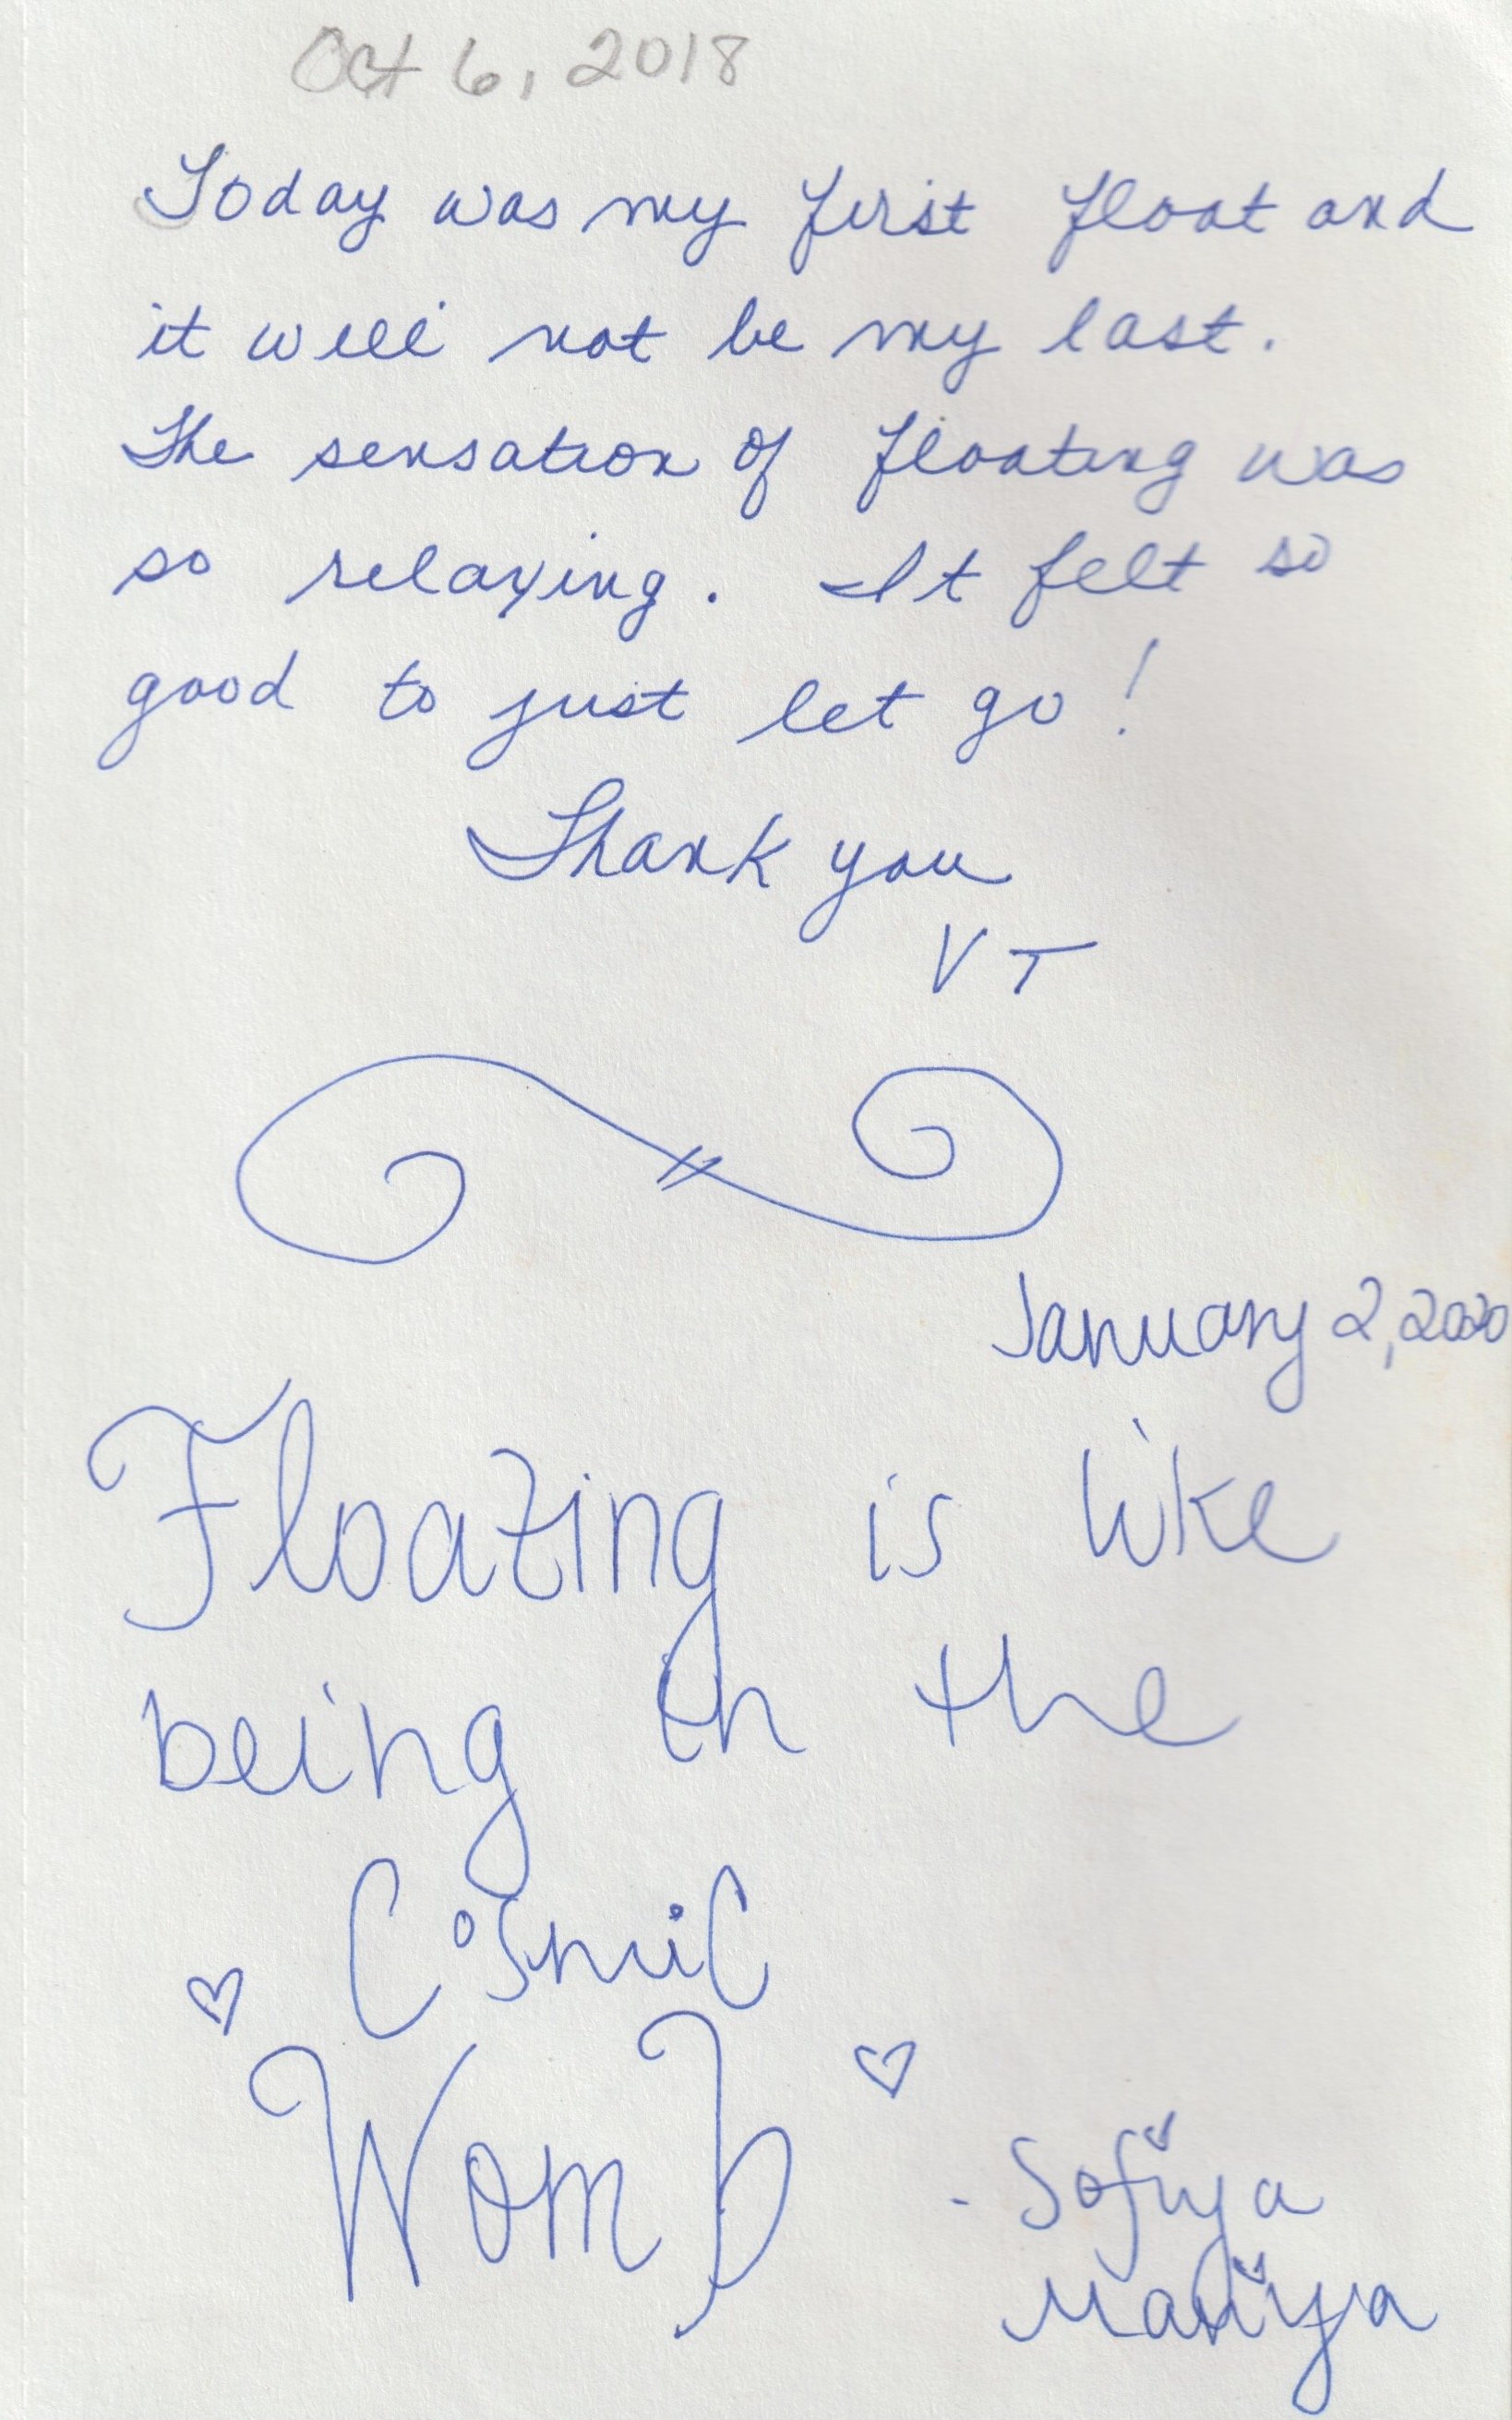 Oct 6, 2018
Today was my first float and
it will not be my last.
The sensation of floating was
so relaxing. It felt so
good to just let go!
Thank you
VT
January 2, 2020
Floating is like
being in the
Cosmic
Womb
- Sofiya
Mariya